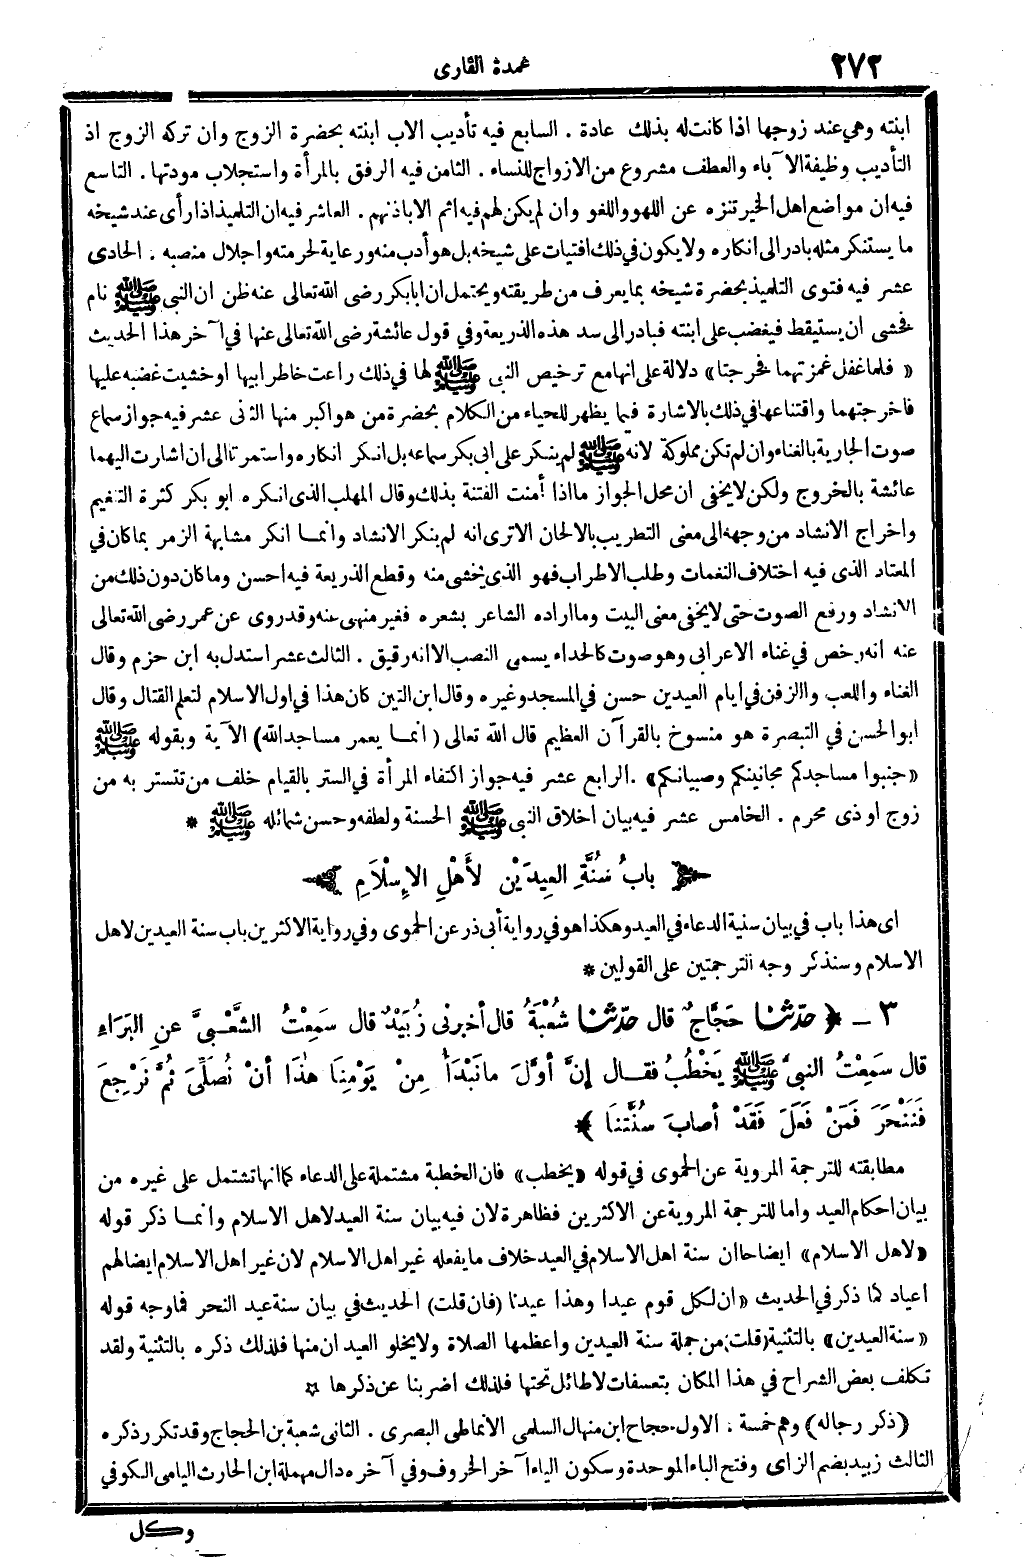 ٢٧٢
عمدة القارى
ابنته وهي عند زوجها اذا كانت له بذلك عادة . السابع فيه تأديب الاب ابنته بحضرة الزوج وان تركه الزوج اذ
التأديب وظيفة الآباء والعطف مشروع من الازواج للنساء . الثامن فيه الرفق بالمرأة واستجلاب مودتها . التاسع
فيه ان مواضع اهل الخير تنزه عن اللهو واللغو وان لم يكن لهم فيه اثم الا باذنهم . العاشر فيه ان التلميذ اذا رأى عند شيخه
ما يستنكر مثله بادر الى انكاره ولا يكون في ذلك افتيات على شيخه بل هو أدب منه ورعاية لحرمته واجلال منصبه . الحادى
عشر فيه فتوى التلميذ بحضرة شيخه بما يعرف من طريقته ويحتمل ان ابا بكر رضى الله تعالى عنه ظن ان النبي ﷺ نام
فخشى ان يستيقظ فيغضب على ابنته فبادر الى سد هذه الذريعة وفي قول عائشة رضى الله تعالى عنها في آخر هذا الحديث
« فلما غفل غمزتهما فخرجتا» دلالة على انها مع ترخيص النبى ﷺ لها في ذلك راعت خاطر ابيها او خشيت غضبه عليها
فاخرجتهما واقتناعها في ذلك بالاشارة فيما يظهر للحياء من الكلام بحضرة من هو اكبر منها الثانى عشر فيه جواز سماع
صوت الجارية بالغناء وان لم تكن مملوكة لانه ﷺ لم ينكر على ابى بكر سماعه بل انكر انكاره واستمرتا الى ان اشارت اليهما
عائشة بالخروج ولكن لا يخفى ان محل الجواز ما اذا أمنت الفتنة بذلك وقال المهلب الذى انكره ابو بكر كثرة التنغيم
واخراج الانشاد من وجهه الى معنى التطريب بالالحان الا ترى انه لم ينكر الانشاد وانمـا انكر مشابهة الزمر بما كان في
المعتاد الذى فيه اختلاف النغمات وطلب الاطراب فهو الذى يخشى منه وقطع الذريعة فيه احسن وما كان دون ذلك من
الانشاد ورفع الصوت حتى لا يخفى معنى البيت وما اراده الشاعر بشعره فغير منهى عنه وقد روى عن عمر رضى الله تعالى
عنه انه رخص في غناء الاعرابى وهو صوت كالحداء يسمى النصب الا انه رقيق . الثالث عشر استدل به ابن حزم وقال
الغناء واللعب والزفن في ايام العيدين حسن في المسجد وغيره وقال ابن التين كان هذا في اول الاسلام لتعلم القتال وقال
ابو الحسن في التبصرة هو منسوخ بالقرآن العظيم قال الله تعالى ( انمـا يعمر مساجد الله) الآية وبقوله ﷺ
«جنبوا مساجدكم مجانينكم وصبيانكم» .الرابع عشر فيه جواز اكتفاء المرأة في الستر بالقيام خلف من تتستر به من
زوج او ذى محرم . الخامس عشر فيه بيان اخلاق النبى ﷺ الحسنة ولطفه وحسن شمائله ﷺ *
بابُ سُنَّةِ العِيدَيْنِ لأَهْلِ الإِسْلاَمِ
اى هذا باب في بيان سنية الدعاء في العيد وهكذا هو في رواية أبى ذر عن الحموى وفي رواية الاكثرين باب سنة العيدين لاهل
الاسلام وسنذكر وجه الترجمتين على القولين *
٣ ــ ﴿ حدّثنا حَجَّاجٌ قال حدّثنا شُعْبَةُ قال أخبرنى زُبَيْدٌ قال سَمِعْتُ الشَّعْبِيَّ عنِ البَرَاءِ
قال سَمِعْتُ النبىَّ ﷺ يَخْطُبُ فقـال إنَّ أوَّلَ مانَبْدَأُ مِنْ يَوْمِنَا هذَا أنْ نُصَلِّىَ ثُمَّ نَرْجِعَ
فَنَنْحَرَ فَمَنْ فَعَلَ فَقَدْ أصابَ سُنَّتَنَا ﴾ *
مطابقته للترجمة المروية عن الحموى في قوله «يخطب» فان الخطبة مشتملة على الدعاء كما انها تشتمل على غيره من
بيان احكام العيد واما للترجمة المروية عن الاكثرين فظاهرة لان فيه بيان سنة العيد لاهل الاسلام وانمـا ذكر قوله
«لاهل الاسلام» ايضاحا ان سنة اهل الاسلام في العيد خلاف ما يفعله غير اهل الاسلام لان غير اهل الاسلام ايضا لهم
أعياد كما ذكر في الحديث «ان لكل قوم عيدا وهذا عيدنا (فان قلت) الحديث في بيان سنة عيد النحر فما وجه قوله
«سنة العيدين» بالتثنية (قلت) من جملة سنة العيدين واعظمها الصلاة ولا يخلو العيدان منها فلذلك ذكره بالتثنية ولقد
تكلف بعض الشراح في هذا المكان بتعسفات لا طائل تحتها فلذلك اضربنا عن ذكرها *
(ذكر رجاله) وهم خمسة . الاول حجاج ابن منهال السلمى الانماطى البصرى . الثانى شعبة بن الحجاج وقد تكرر ذكره
الثالث زبيد بضم الزاى وفتح الباء الموحدة وسكون الياء آخر الحروف وفي آخره دال مهملة ابن الحارث اليامى الكوفي
وكل